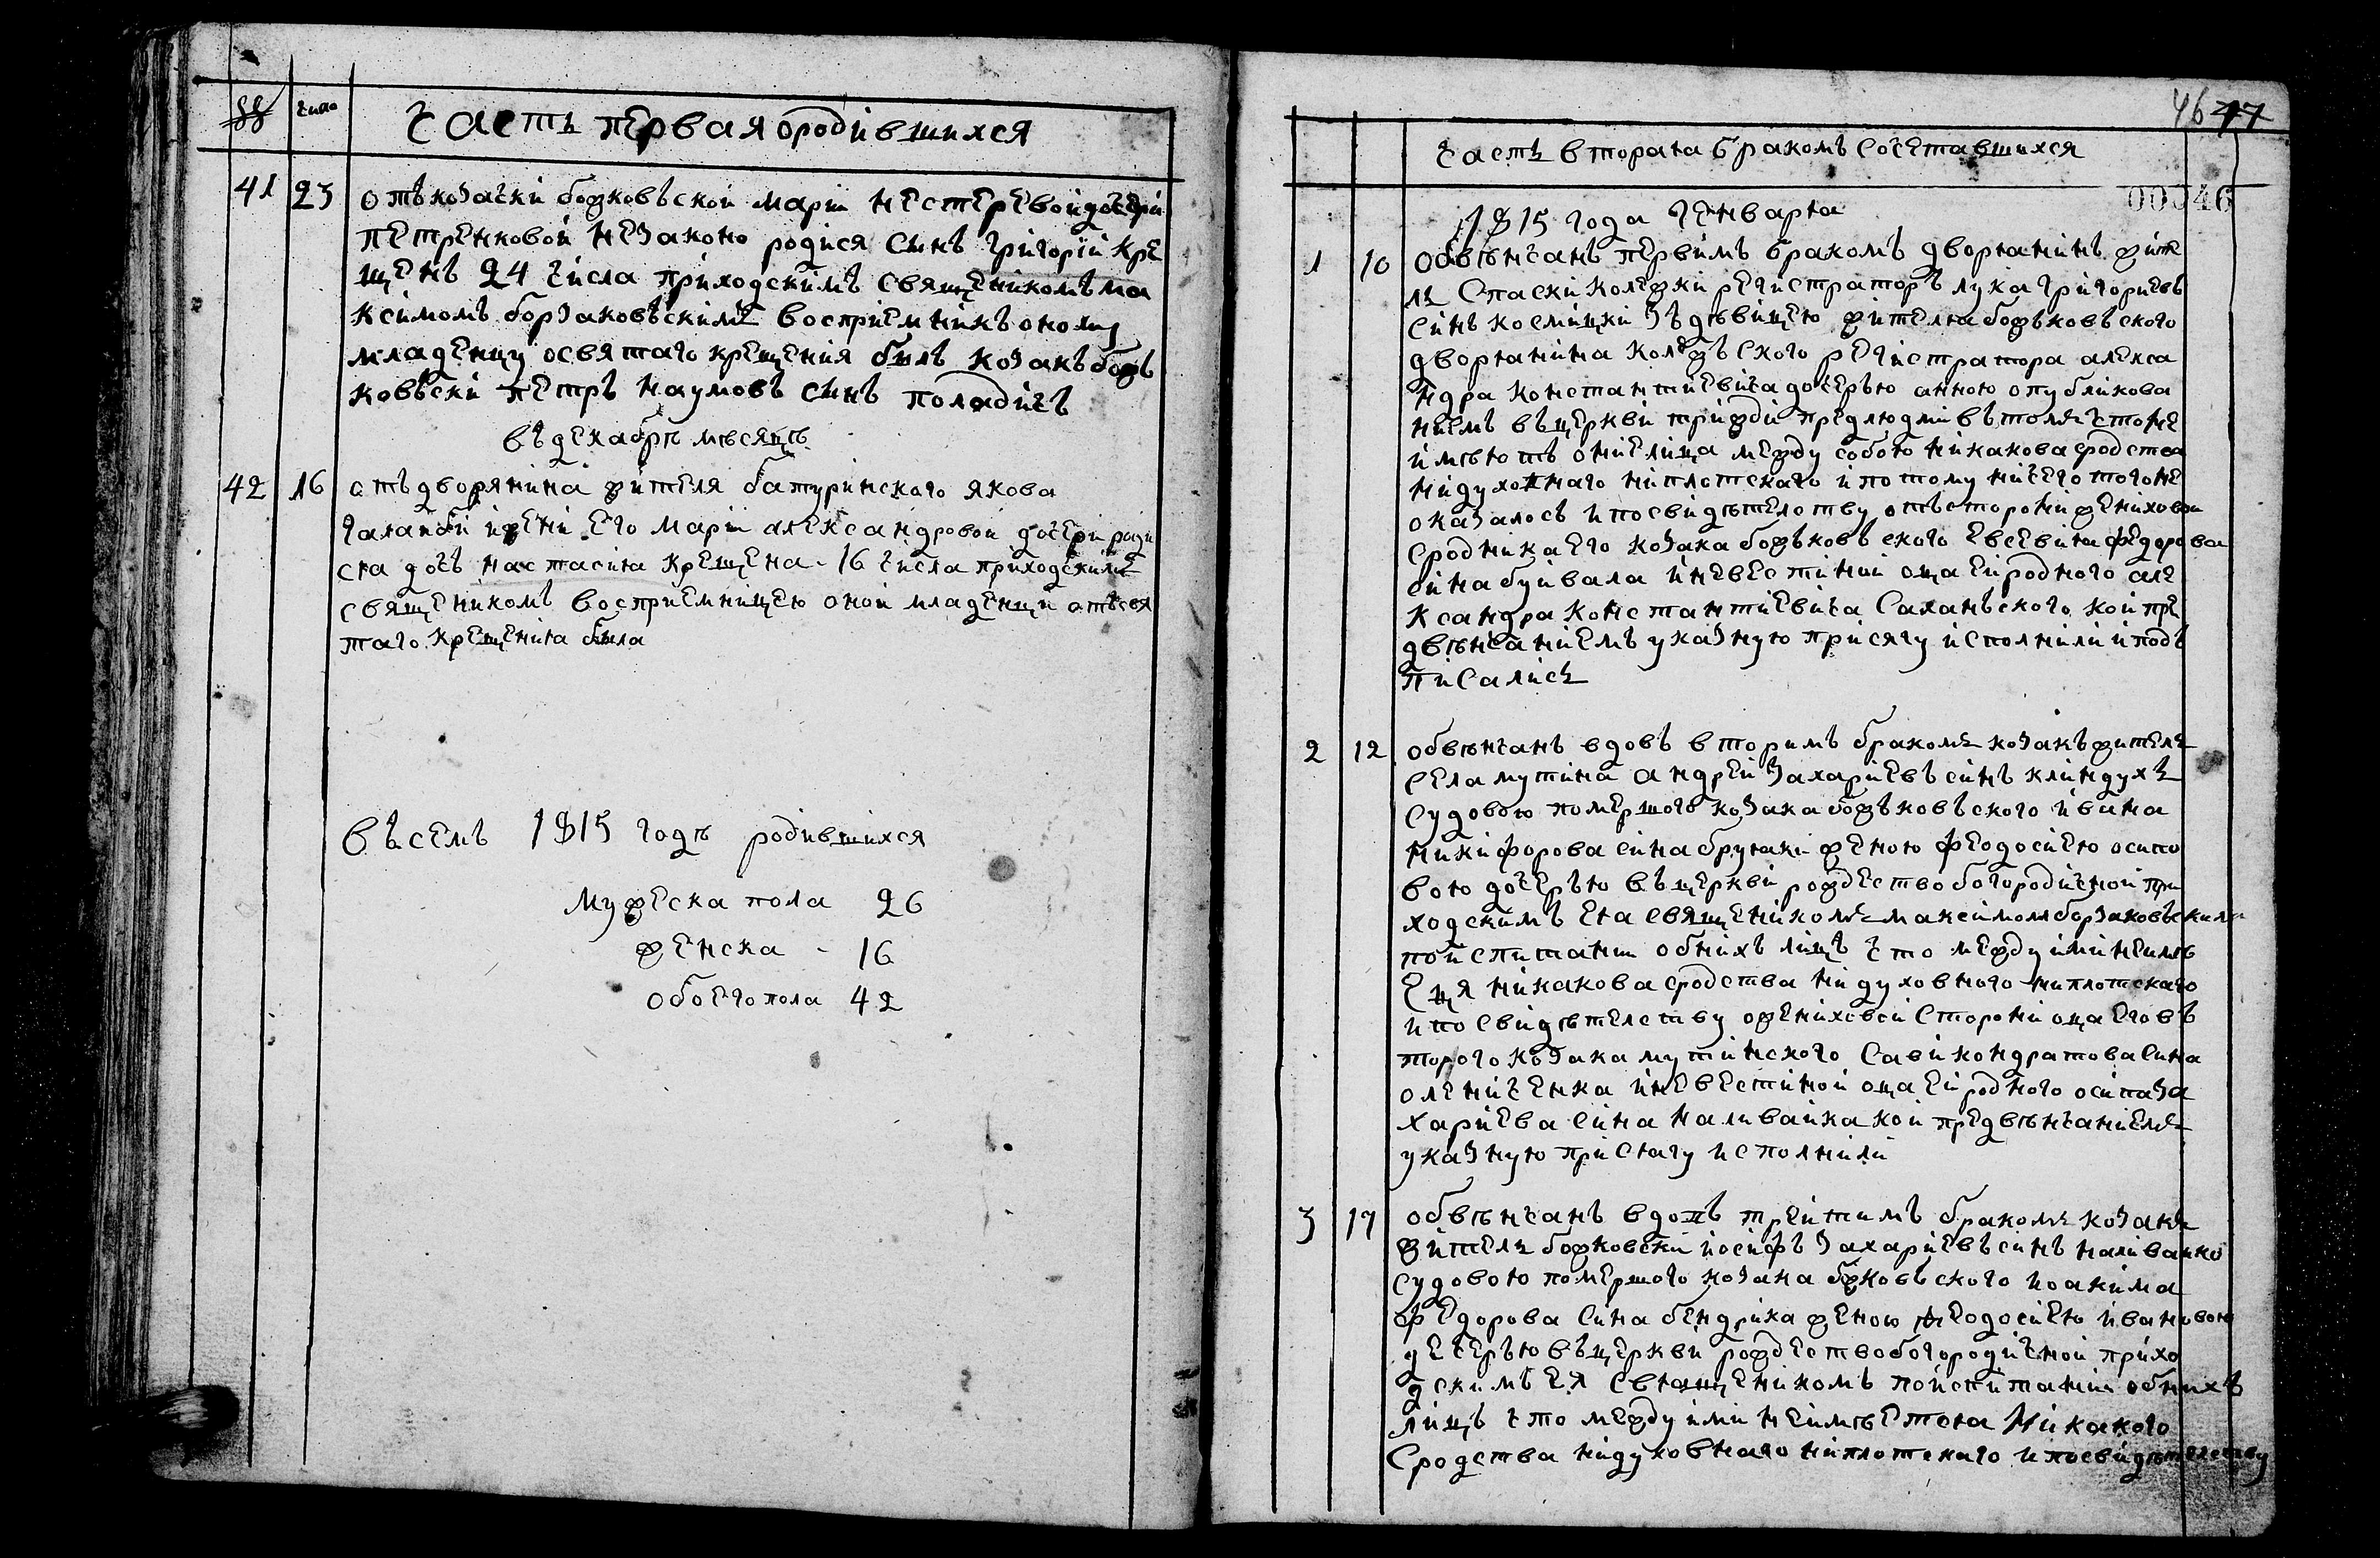 число
Часть первая ородившихся
41 23 отъ козачки божковъской марiи нестеревой дочери
петренковой незаконо родися сынъ григорiй кре
щенъ 24 числа приходскимъ священикомъ ма
ксимомъ борзаковъскимъ восприемникъ оному
младенцу освятаго крещения былъ козакъ бож
ковъски петръ наумовъ сынъ
въ декабре месяце
42 16 отъ дворянина жителя батуринского якова
и жени его марiи александровой дочери роди
ста дочъ настасiя крещена 16 числа приходскимъ
священикомъ восприемницею оной младенци отъ свя
таго крещенiя была
въ семъ 1815 годе родившихся
мужеска пола 26
женска - 16
обоего пола 42
46 47
Часть вторая бракомъ сочетавшихся
00046
1815 года генваря
1 10 обвенчанъ первимъ бракомъ дворянинъ жите
ль Спаски колежки регистраторъ лука григориевъ
синъ космицки зъ девицею жителя божъковъского
дворянина колежъского регистратора алекса
ндра константиевича дочерью анною опубликова
ниемъ въ церкви трижди предлюдми въ томъ что не
имеютъ они лица между собою никакова сродства
ни духовнаго ни плотскаго и потому ничего того не
оказалось и по свидетелству отъ сторони жениховои
сродника его козака божъковъ ского евсевия федорова
сина буивала и невестиной оца еи родного але
ксандра константиевича Саханъского кои пре
двенчаниемъ указную присягу исполнили и подъ
писались
2 12 обвенчанъ вдовъ вторимъ бракомъ козакъ житель
села мутина андреи захариевъ синъ клиндухъ
судовою помершого козака божъковъского ивана
никифорова сина женою феодосиею осипо
вою дочерью въ церкви рождество богородичной при
ходскимъ ея священикомъ максимомъ борзаковъскимъ
по испитании обнихъ лицъ что между ими не име
еця никакова сродства ни духовного ни плотскаго
и по свидетелству ожениховой сторони оца его въ
торого козака мутинского Сави кондратова сина
оленичнка и невестиной оца еи родного осипа за
хариева сина наливайка кои предвенчаниемъ
указную присягу исполнили
3 17 обвенчанъ вдовъ третимъ бракомъ козакъ
житель божковски иосифъ захариевъ синъ наливайко
судовою помершого козака бжковъского иоакима
федорова сина бендрика женою феодосиею ивановою
дечерью въ церкви рождество богородичной прихо
дскимъ ея священикомъ по испитании обнихъ
лицъ что между ими неимеетъся никакого
сродства ни духовнаго ни плотскаго и по свидетелству